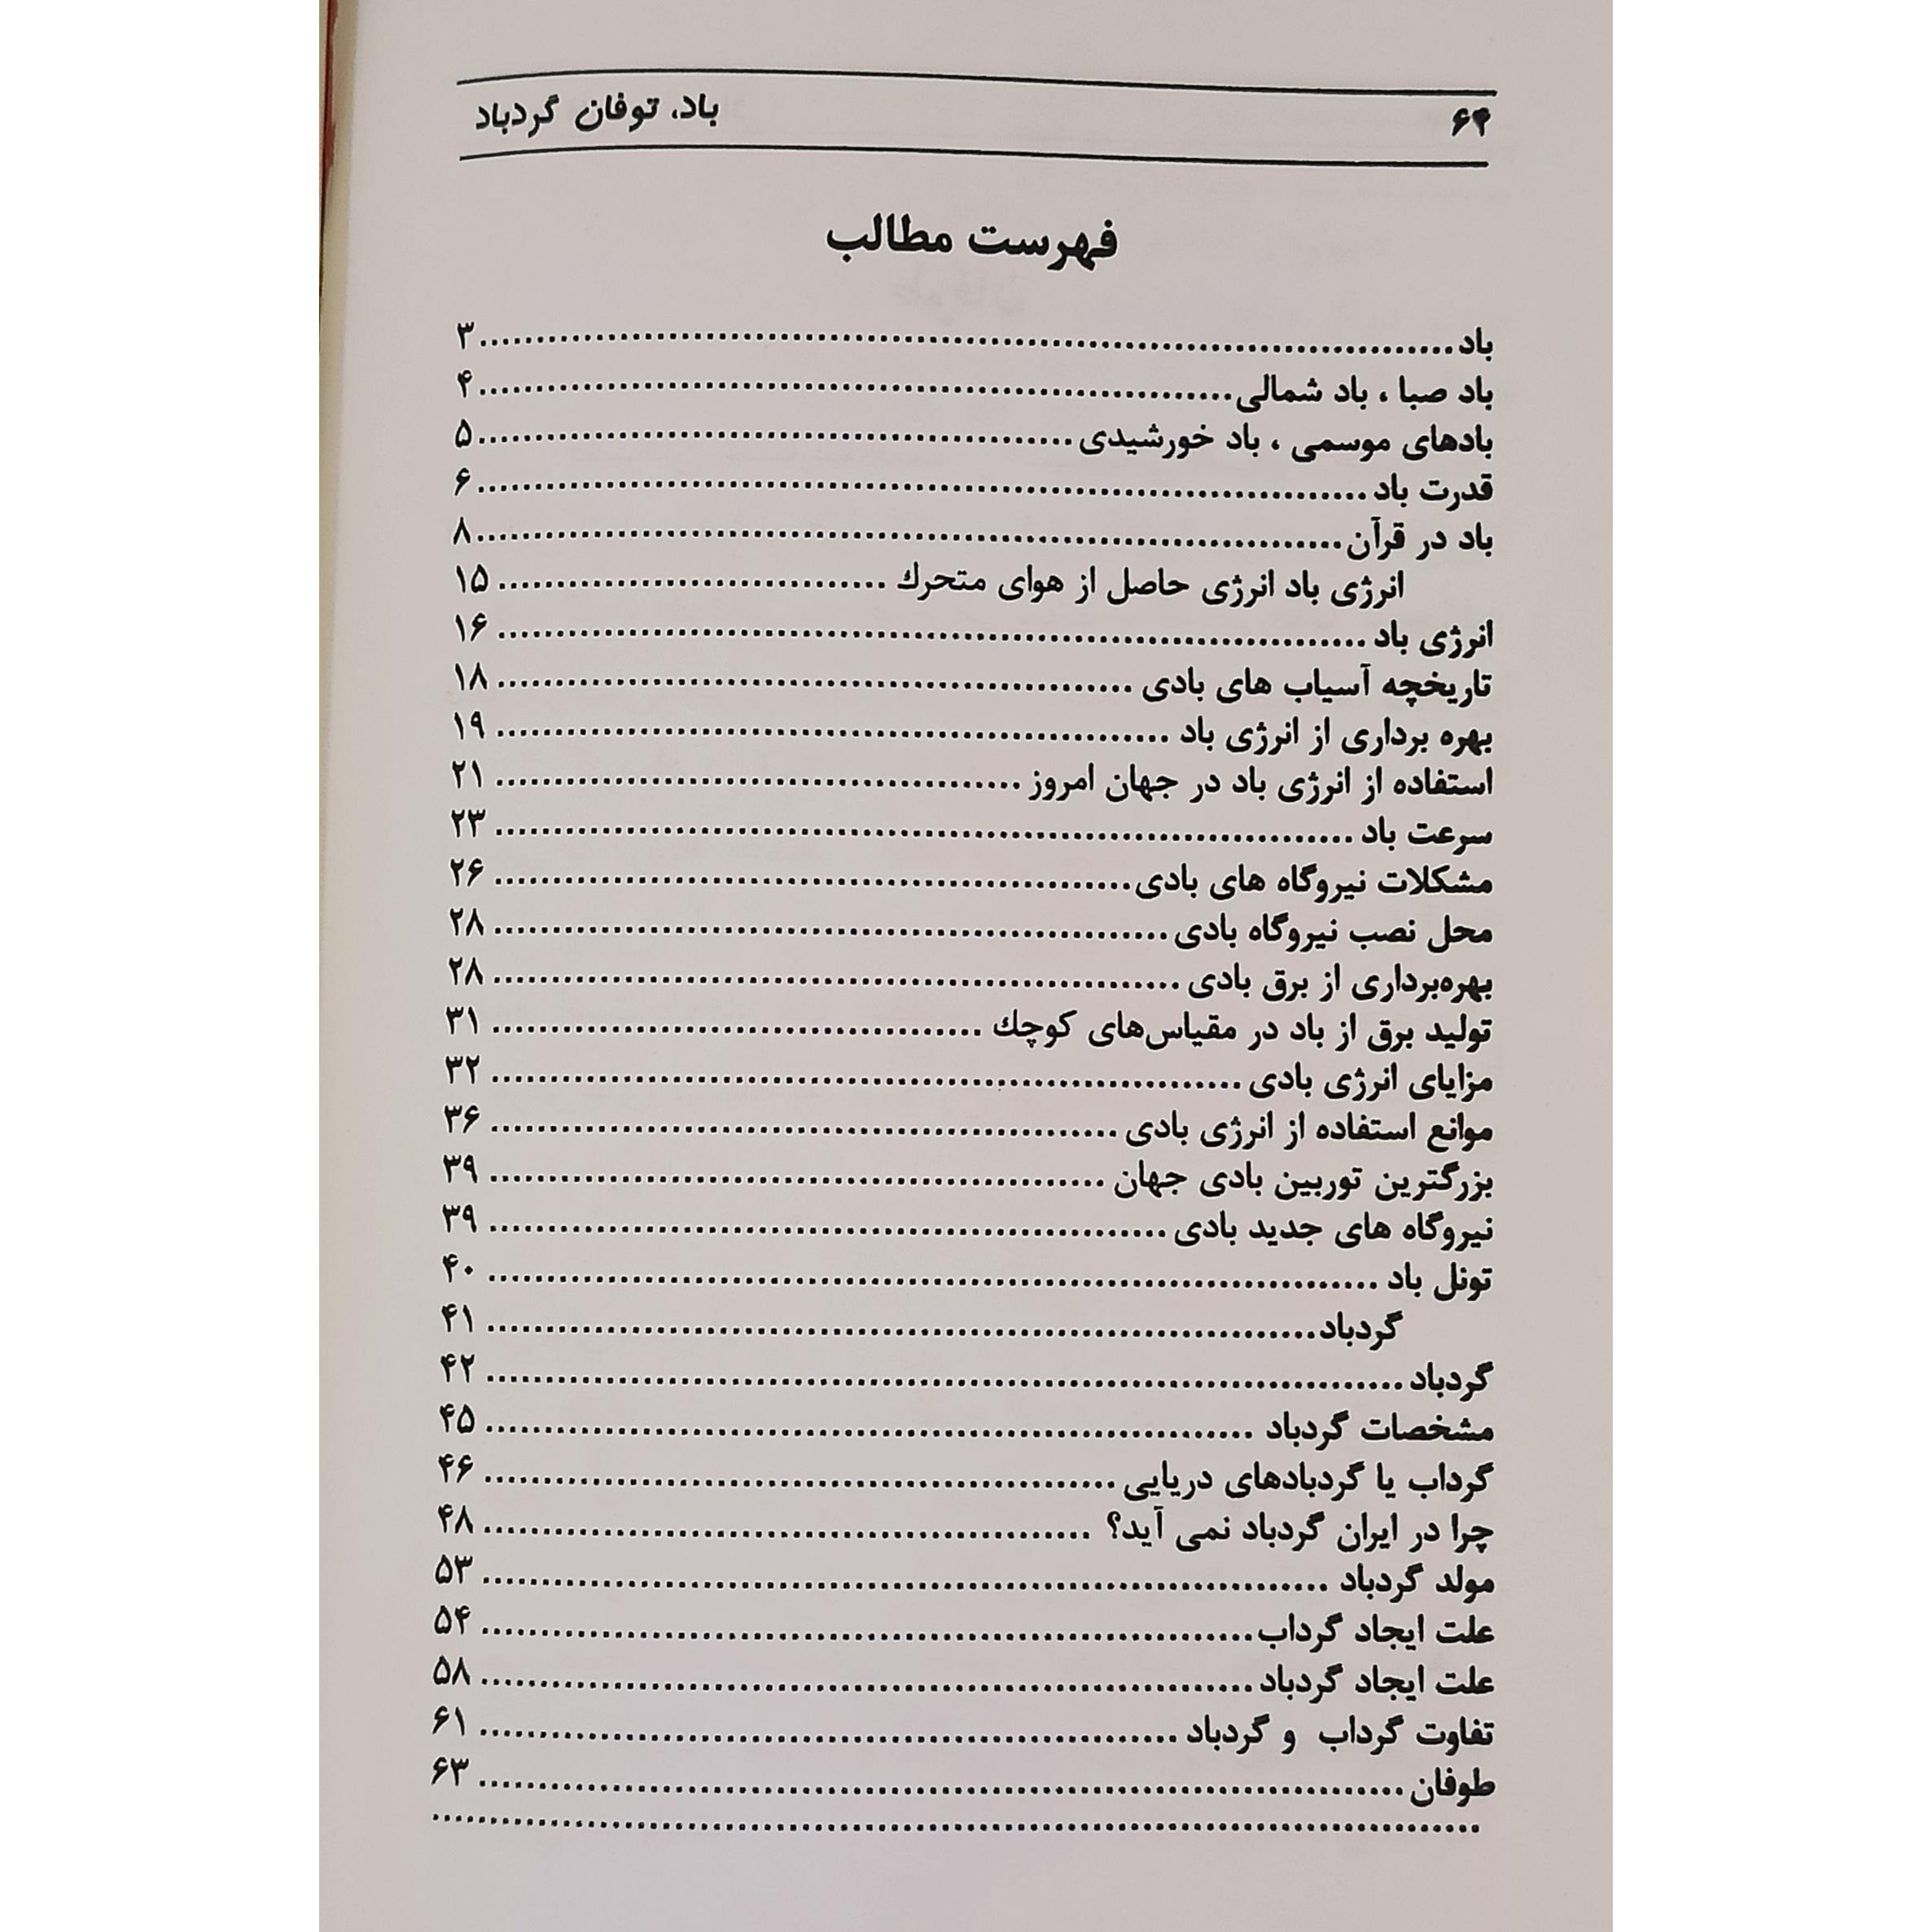 ۶۴ باد، توفان گردباد
فهرست مطالب
باد..........۳
باد صبا ، باد شمالی..........۴
بادهای موسمی ، باد خورشیدی..........۵
قدرت باد..........۶
باد در قرآن..........۸
انرژی باد انرژی حاصل از هوای متحرك..........۱۵
انرژی باد..........۱۶
تاریخچه آسیاب های بادی..........۱۸
بهره برداری از انرژی باد..........۱۹
استفاده از انرژی باد در جهان امروز..........۲۱
سرعت باد..........۲۳
مشکلات نیروگاه های بادی..........۲۶
محل نصب نیروگاه بادی..........۲۸
بهره‌برداری از برق بادی..........۲۸
تولید برق از باد در مقیاس‌های کوچك..........۳۱
مزایای انرژی بادی..........۳۲
موانع استفاده از انرژی بادی..........۳۶
بزرگترین توربین بادی جهان..........۳۹
نیروگاه های جدید بادی..........۳۹
تونل باد..........۴۰
گردباد..........۴۱
گردباد..........۴۲
مشخصات گردباد..........۴۵
گرداب یا گردبادهای دریایی..........۴۶
چرا در ایران گردباد نمی آید؟..........۴۸
مولد گردباد..........۵۳
علت ایجاد گرداب..........۵۴
علت ایجاد گردباد..........۵۸
تفاوت گرداب و گردباد..........۶۱
طوفان..........۶۳